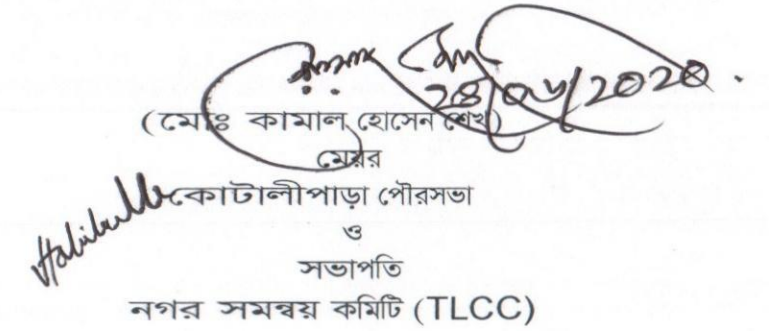 ২৪/০৬/২০২০.
(মোঃ কামাল হোসেন শেখ)
মেয়র
Habibull কোটালীপাড়া পৌরসভা
ও
সভাপতি
নগর সমন্বয় কমিটি (TLCC)